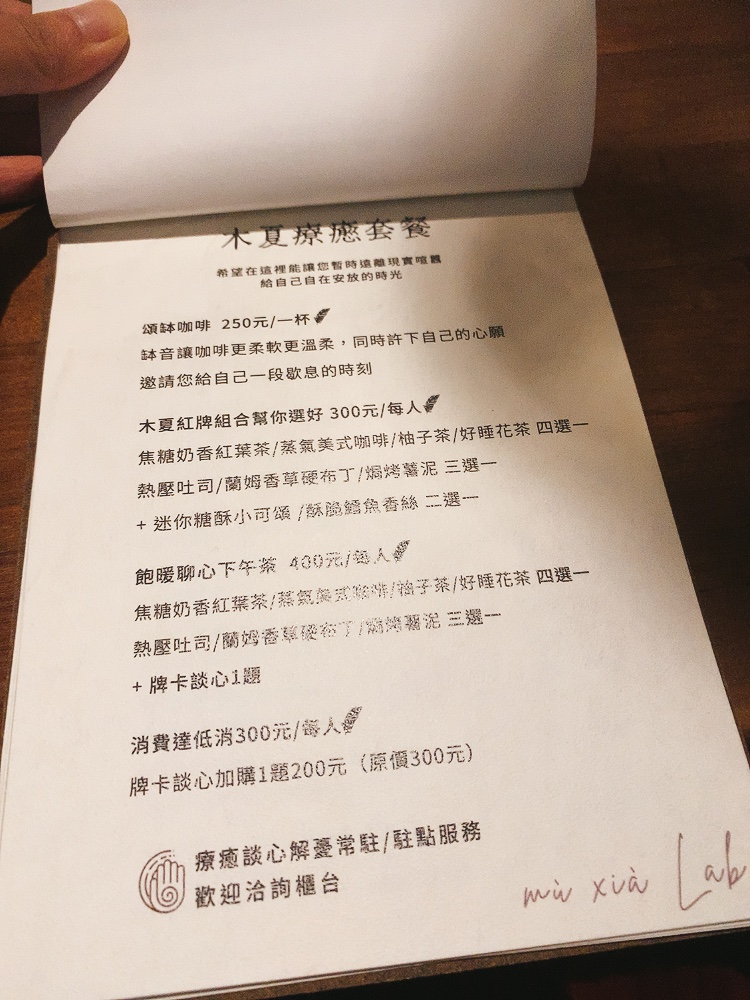 木夏療癒套餐
希望在這裡能讓您暫時遠離現實喧囂
給自己自在安放的時光
頌缽咖啡 250元/一杯
缽音讓咖啡更柔軟更溫柔，同時許下自己的心願
邀請您給自己一段歇息的時刻
木夏紅牌組合幫你選好 300元/每人
焦糖奶香紅葉茶/蒸氣美式咖啡/柚子茶/好睡花茶 四選一
熱壓吐司/蘭姆香草硬布丁/焗烤薯泥 三選一
+ 迷你糖酥小可頌 /酥脆鱈魚香絲 二選一
飽暖聊心下午茶 400元/每人
焦糖奶香紅葉茶/蒸氣美式咖啡/柚子茶/好睡花茶 四選一
熱壓吐司/蘭姆香草硬布丁/焗烤薯泥 三選一
+ 牌卡談心1題
消費達低消300元/每人
牌卡談心加購1題200元（原價300元）
療癒談心解憂常駐/駐點服務
歡迎洽詢櫃台
mù xià Lab